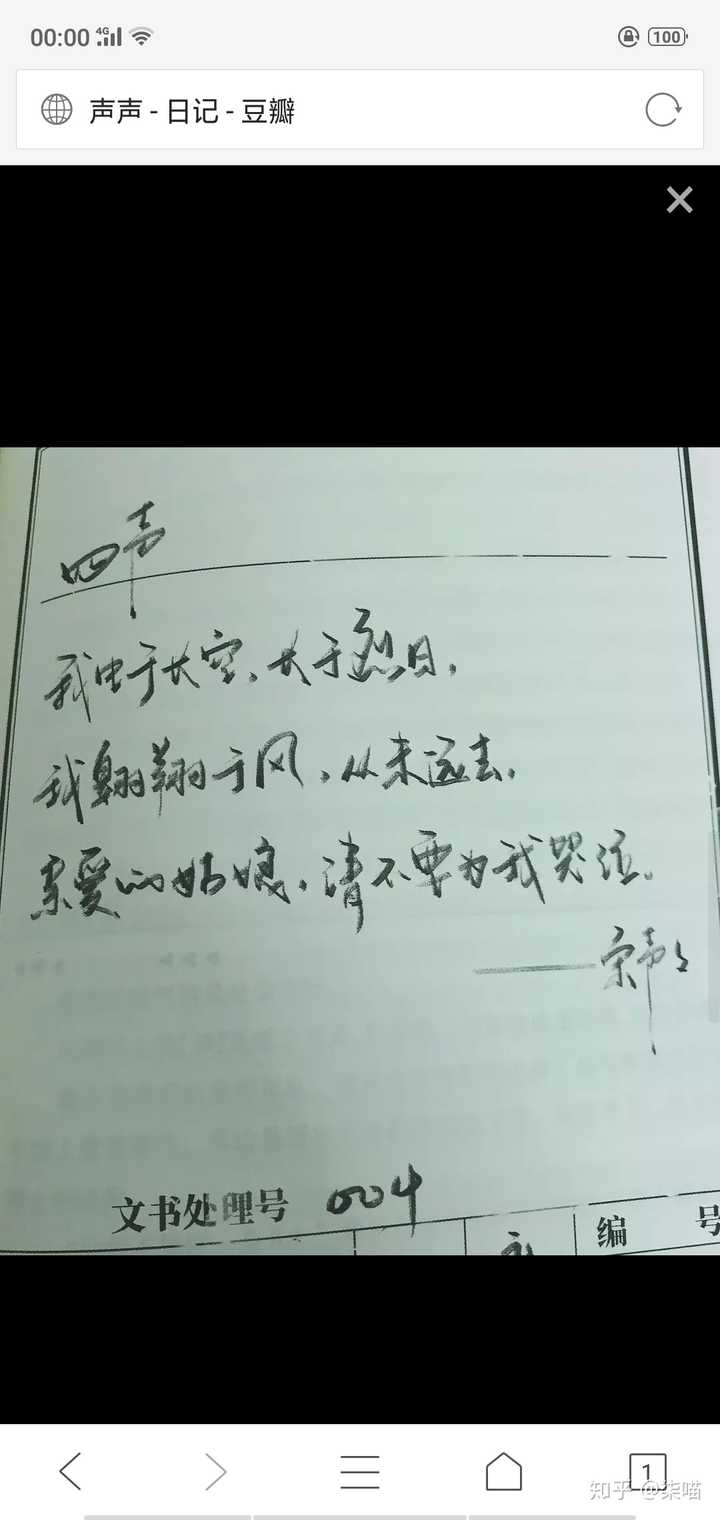 00:00 4G 100
声声 - 日记 - 豆瓣
四声
我生于长空、长于烈日,
我翱翔于风,从未远去,
亲爱的姑娘,请不要为我哭泣。
——宋声声
文书处理号 004
编 号
1
知乎 @柒喵